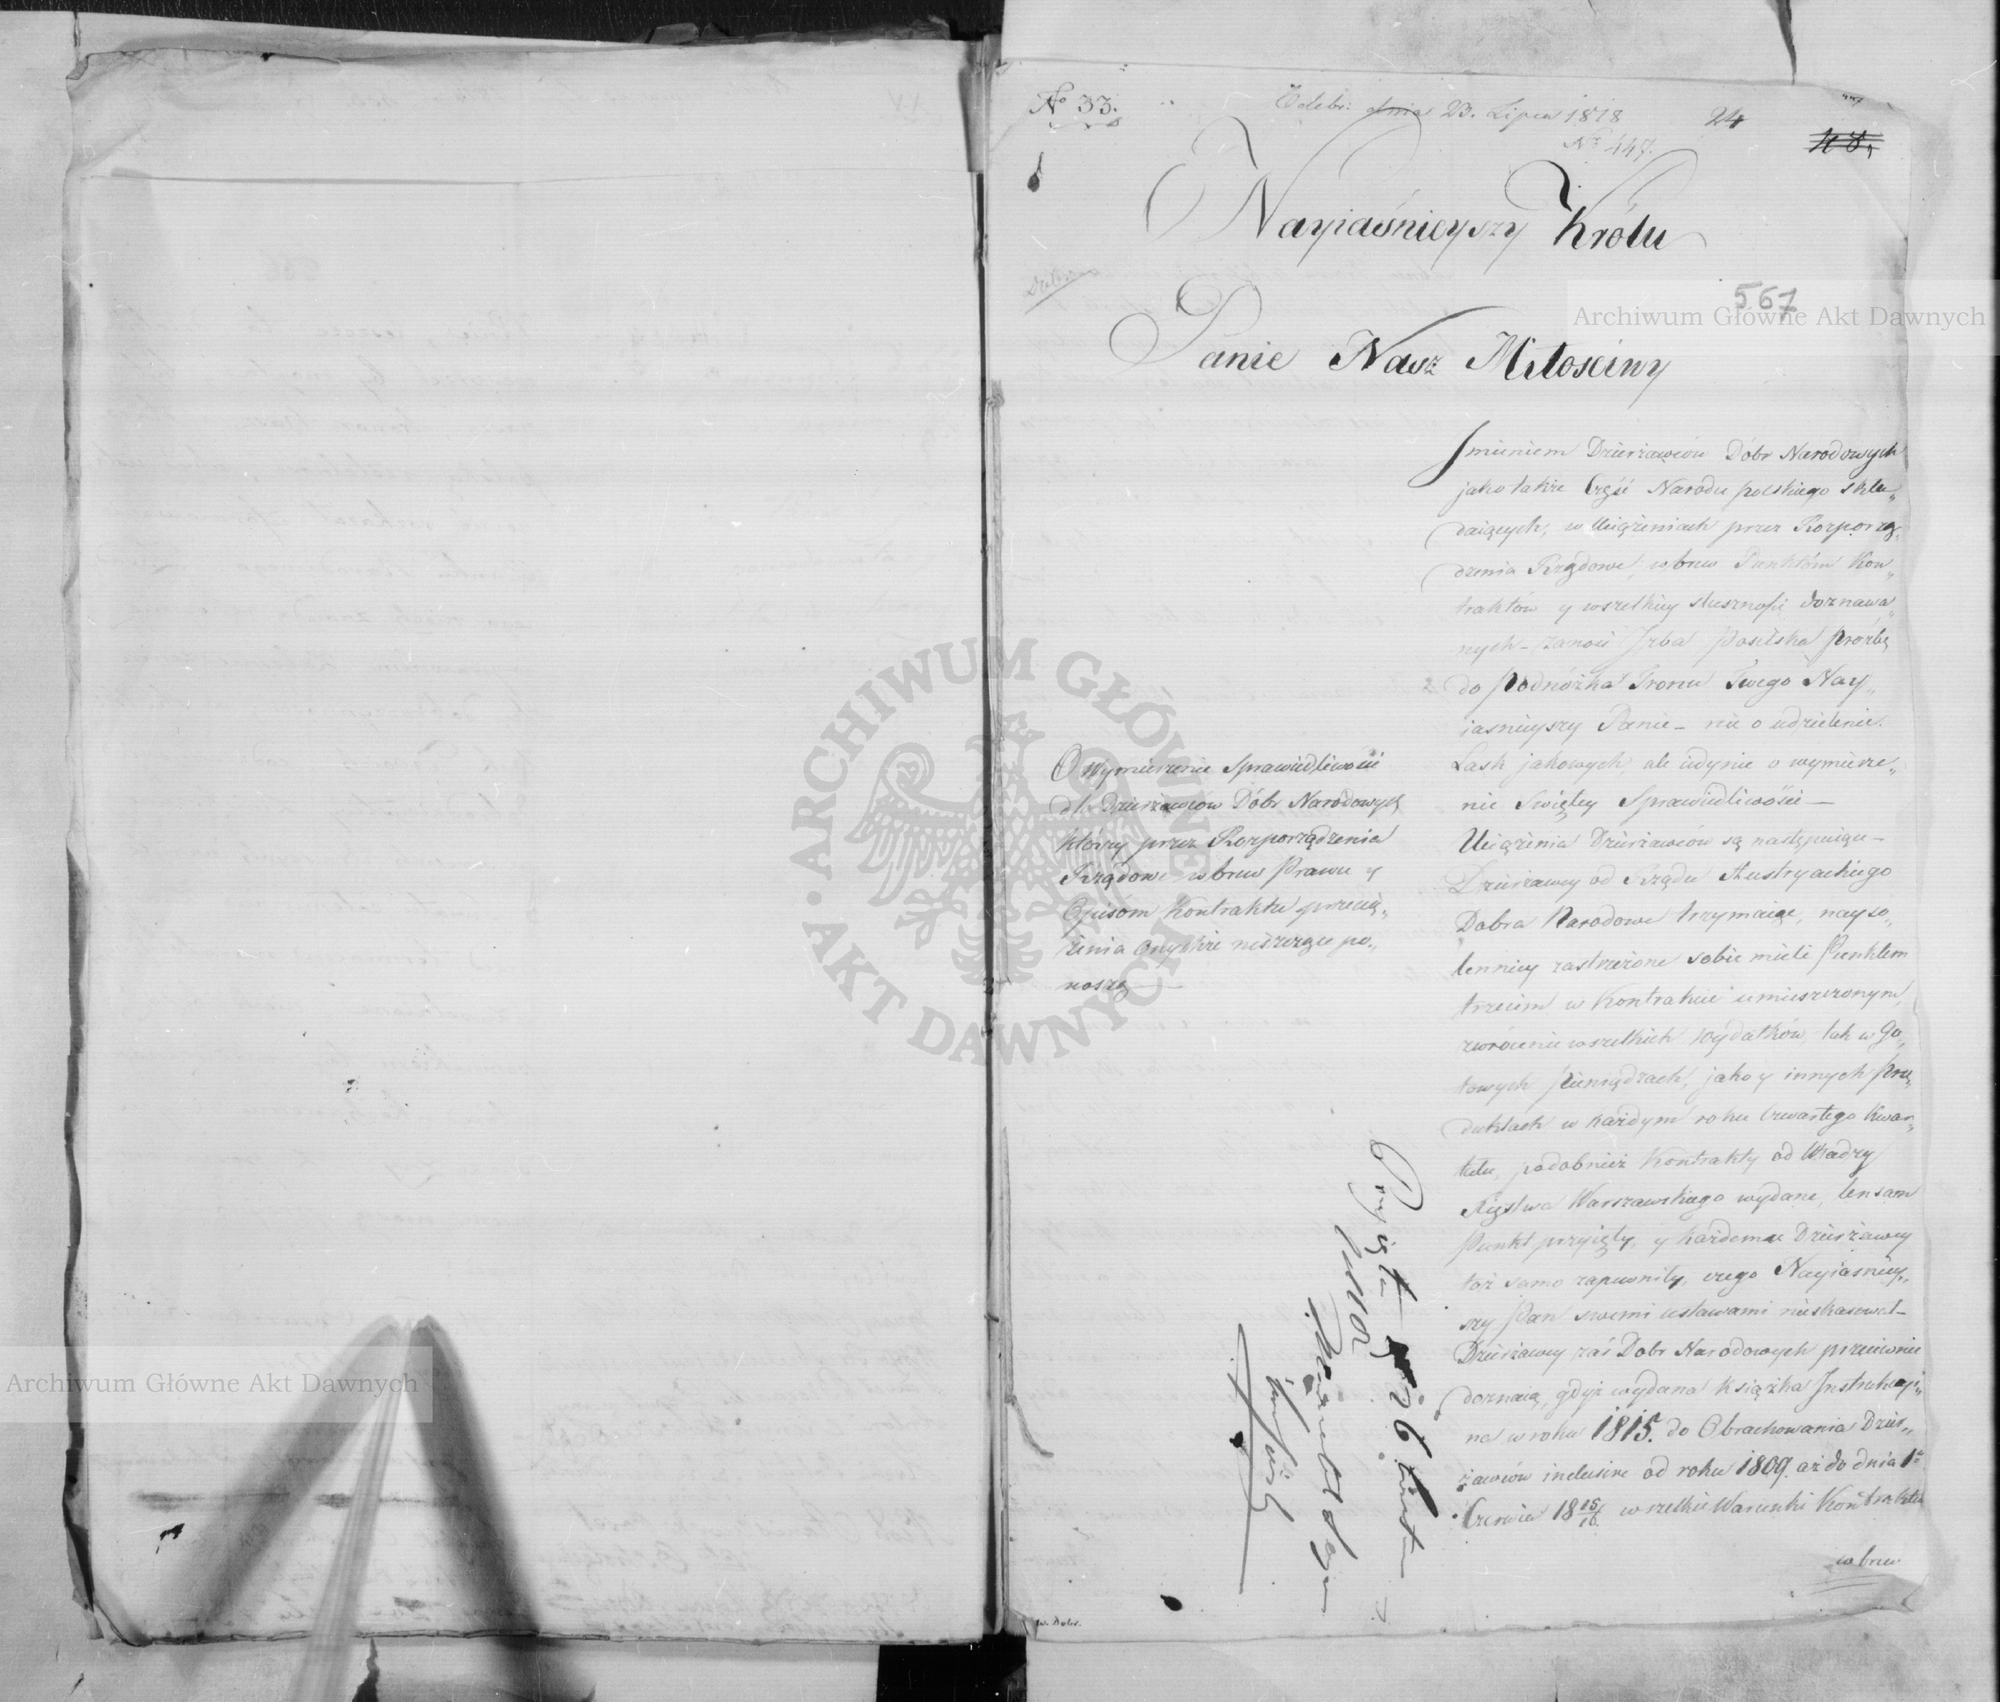 No 33.
Odebr: dnia 23. Lipca 1818
No 447.
24
Nayiaśnieyszy Królu
567
Archiwum Główne Akt Dawnych
Panie Nasz Miłościwy
Imieniem Dzierżawców Dóbr Narodowych
jako także Część Narodu polskiego skła„
daiących, w Uciążeniach przez Rozporzą„
dzenia Rządowe, wbrew Punktów Kon„
traktów y wszelkiey słusznośći doznawa„
nych – zanosi Izba Poselska Prożbę
do Podnóżka Tronu Twego Nay„
iasnieyszy Panie – nie o udzielenie
Łask jakowych, ale iedynie o wymierze„
nie Swiętey Sprawiedliwości —
Uciążenia Dzierżawców są następuiące –
Dzierżawcy od Rządu Austryackiego
Dobra Narodowe trzymaiąc, nayso„
lenniey zastrzeżone sobie mieli Punktem
trzecim w Kontrakcie umieszczonym,
zwrócenie wszelkich Wydatków, tak w Go„
towych Pieniądzach, jako y innych Pro„
duktach w każdym roku Czwartego Kwar„
tału, podobnież Kontrakty od Władzy
Xięstwa Warszawskiego wydane, tensam
Punkt przyięły, y każdemu Dzierżawcy
toż samo zapewniły, czego Nayiasniey„
szy Pan swemi ustawami nieskasował –
Dzierżawcy zaś Dobr Narodowych przeciwnie
doznaią, gdyż wydana Książka Instrukcyi„
na w roku 1815. do Obrachowania Dzier„
żawców inclusive od roku 1809. aż do dnia 1o
Czerwca 18 15/16. wszelkie Warunki Kontraktu
wbrew
O Wymierzenie Sprawiedliwości
dla Dzierżawców Dóbr Narodowych
którzy przez Rozporządzenia
Rządowe wbrew Prawu y
Opisom Kontraktu przecią„
żenia
no„
noszą —
Przyięta
ARCHIWUM GŁÓWNE AKT DAWNYCH
Archiwum Główne Akt Dawnych